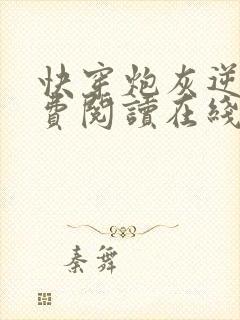 快穿炮灰逆
費閱讀在綫
秦舞